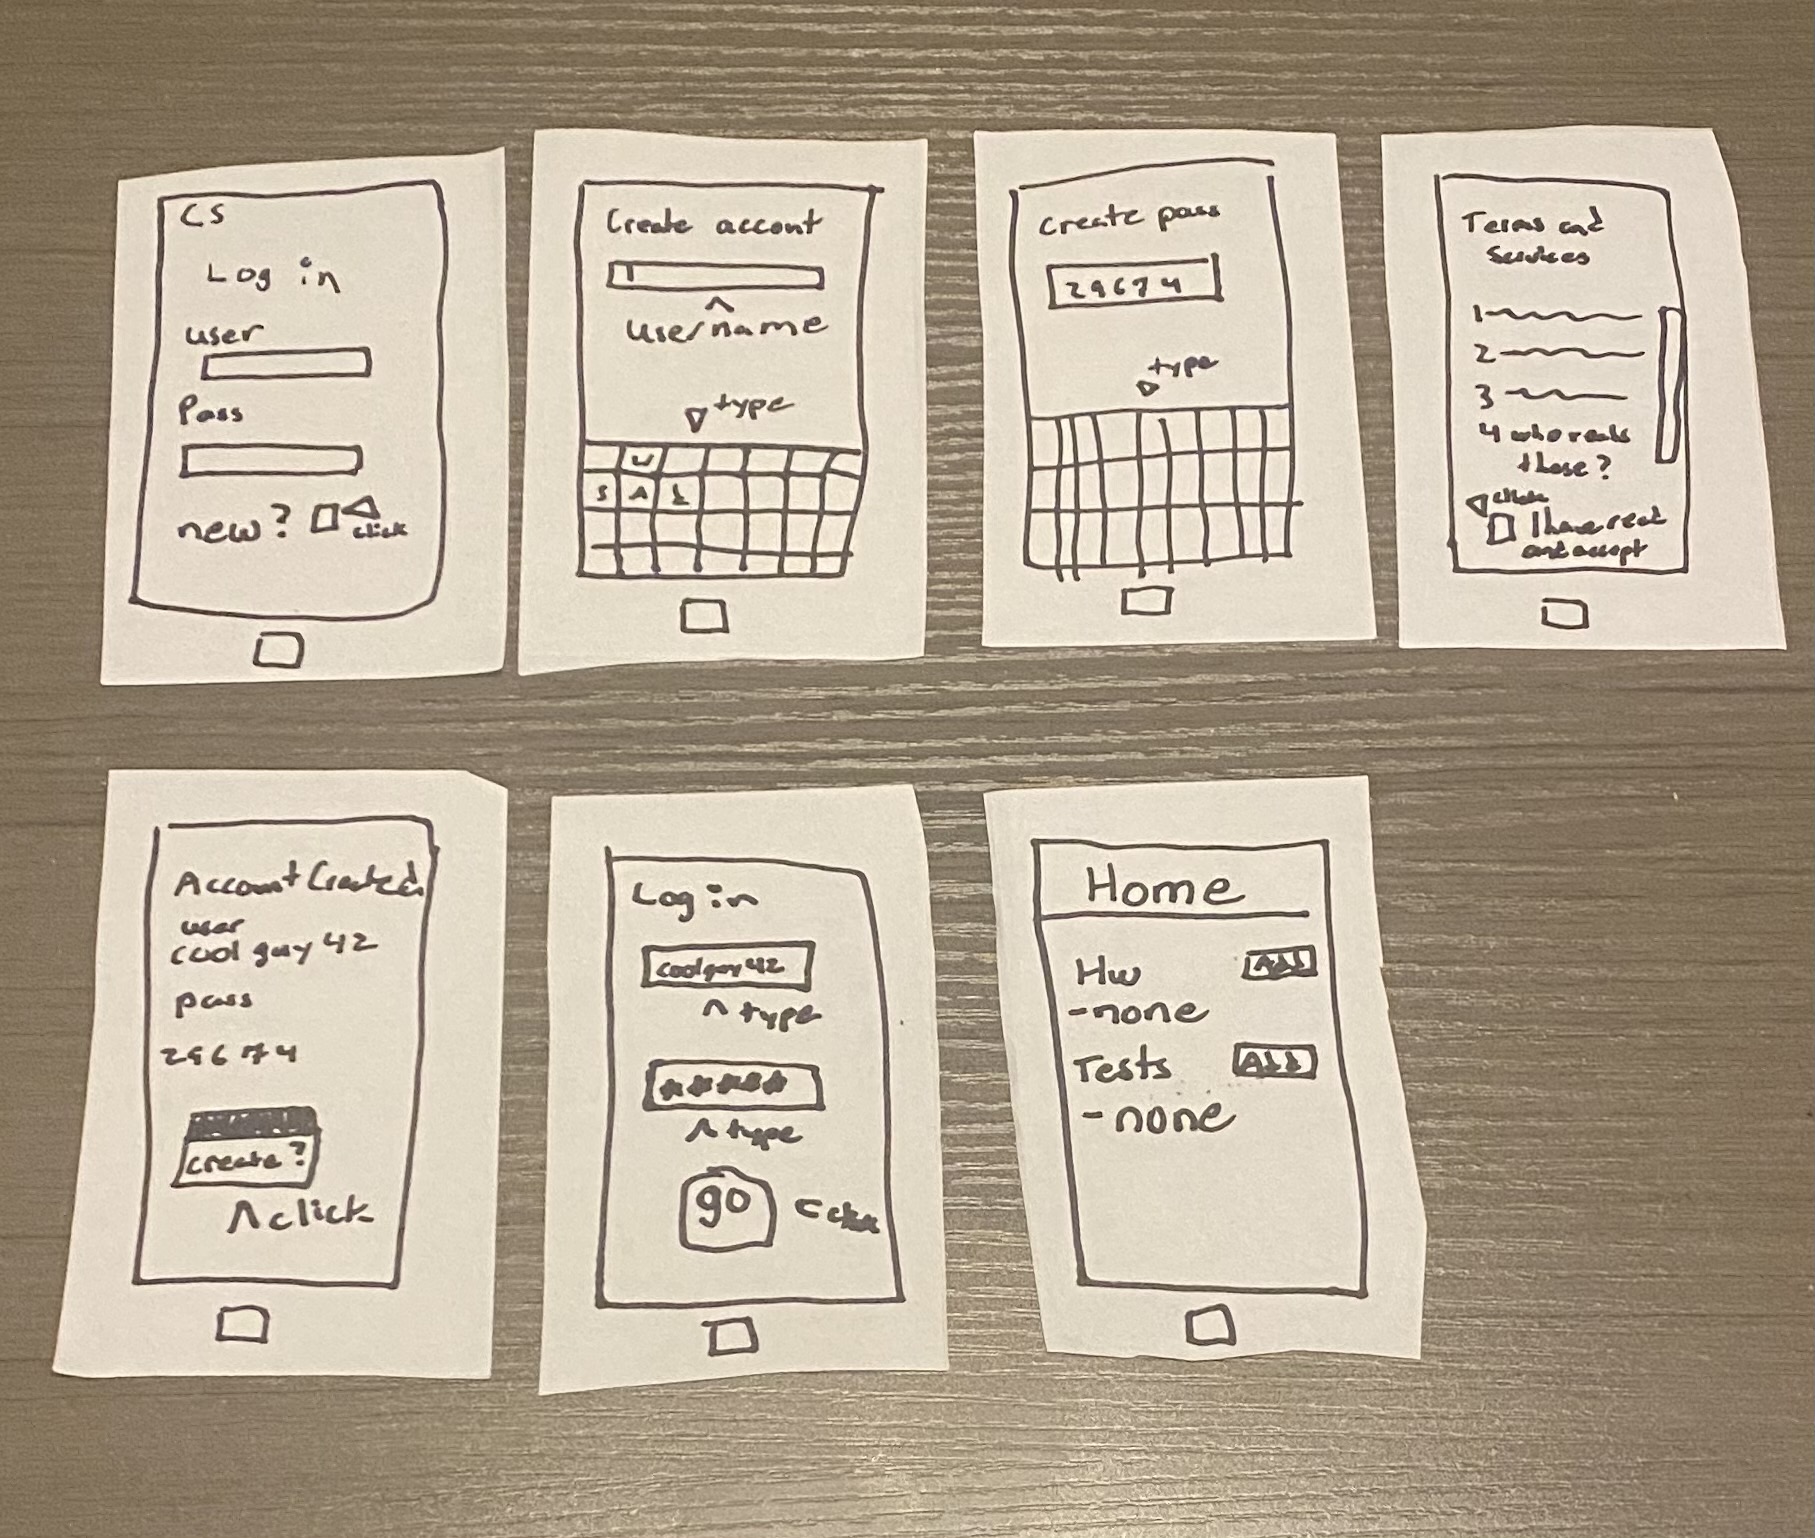 CS
Log in
user
Pass
new?
click
Create accont
^
username
type
W
S A
Create pass
29674
type
Terms and
Services
1
2
3
4 who reads
these?
click
I have read
and accept
Account Created
user
cool guy 42
pass
29674
create?
^ click
Log in
coolguy42
^ type
*****
^ type
go
click
Home
Hw Add
-none
Tests Add
-none